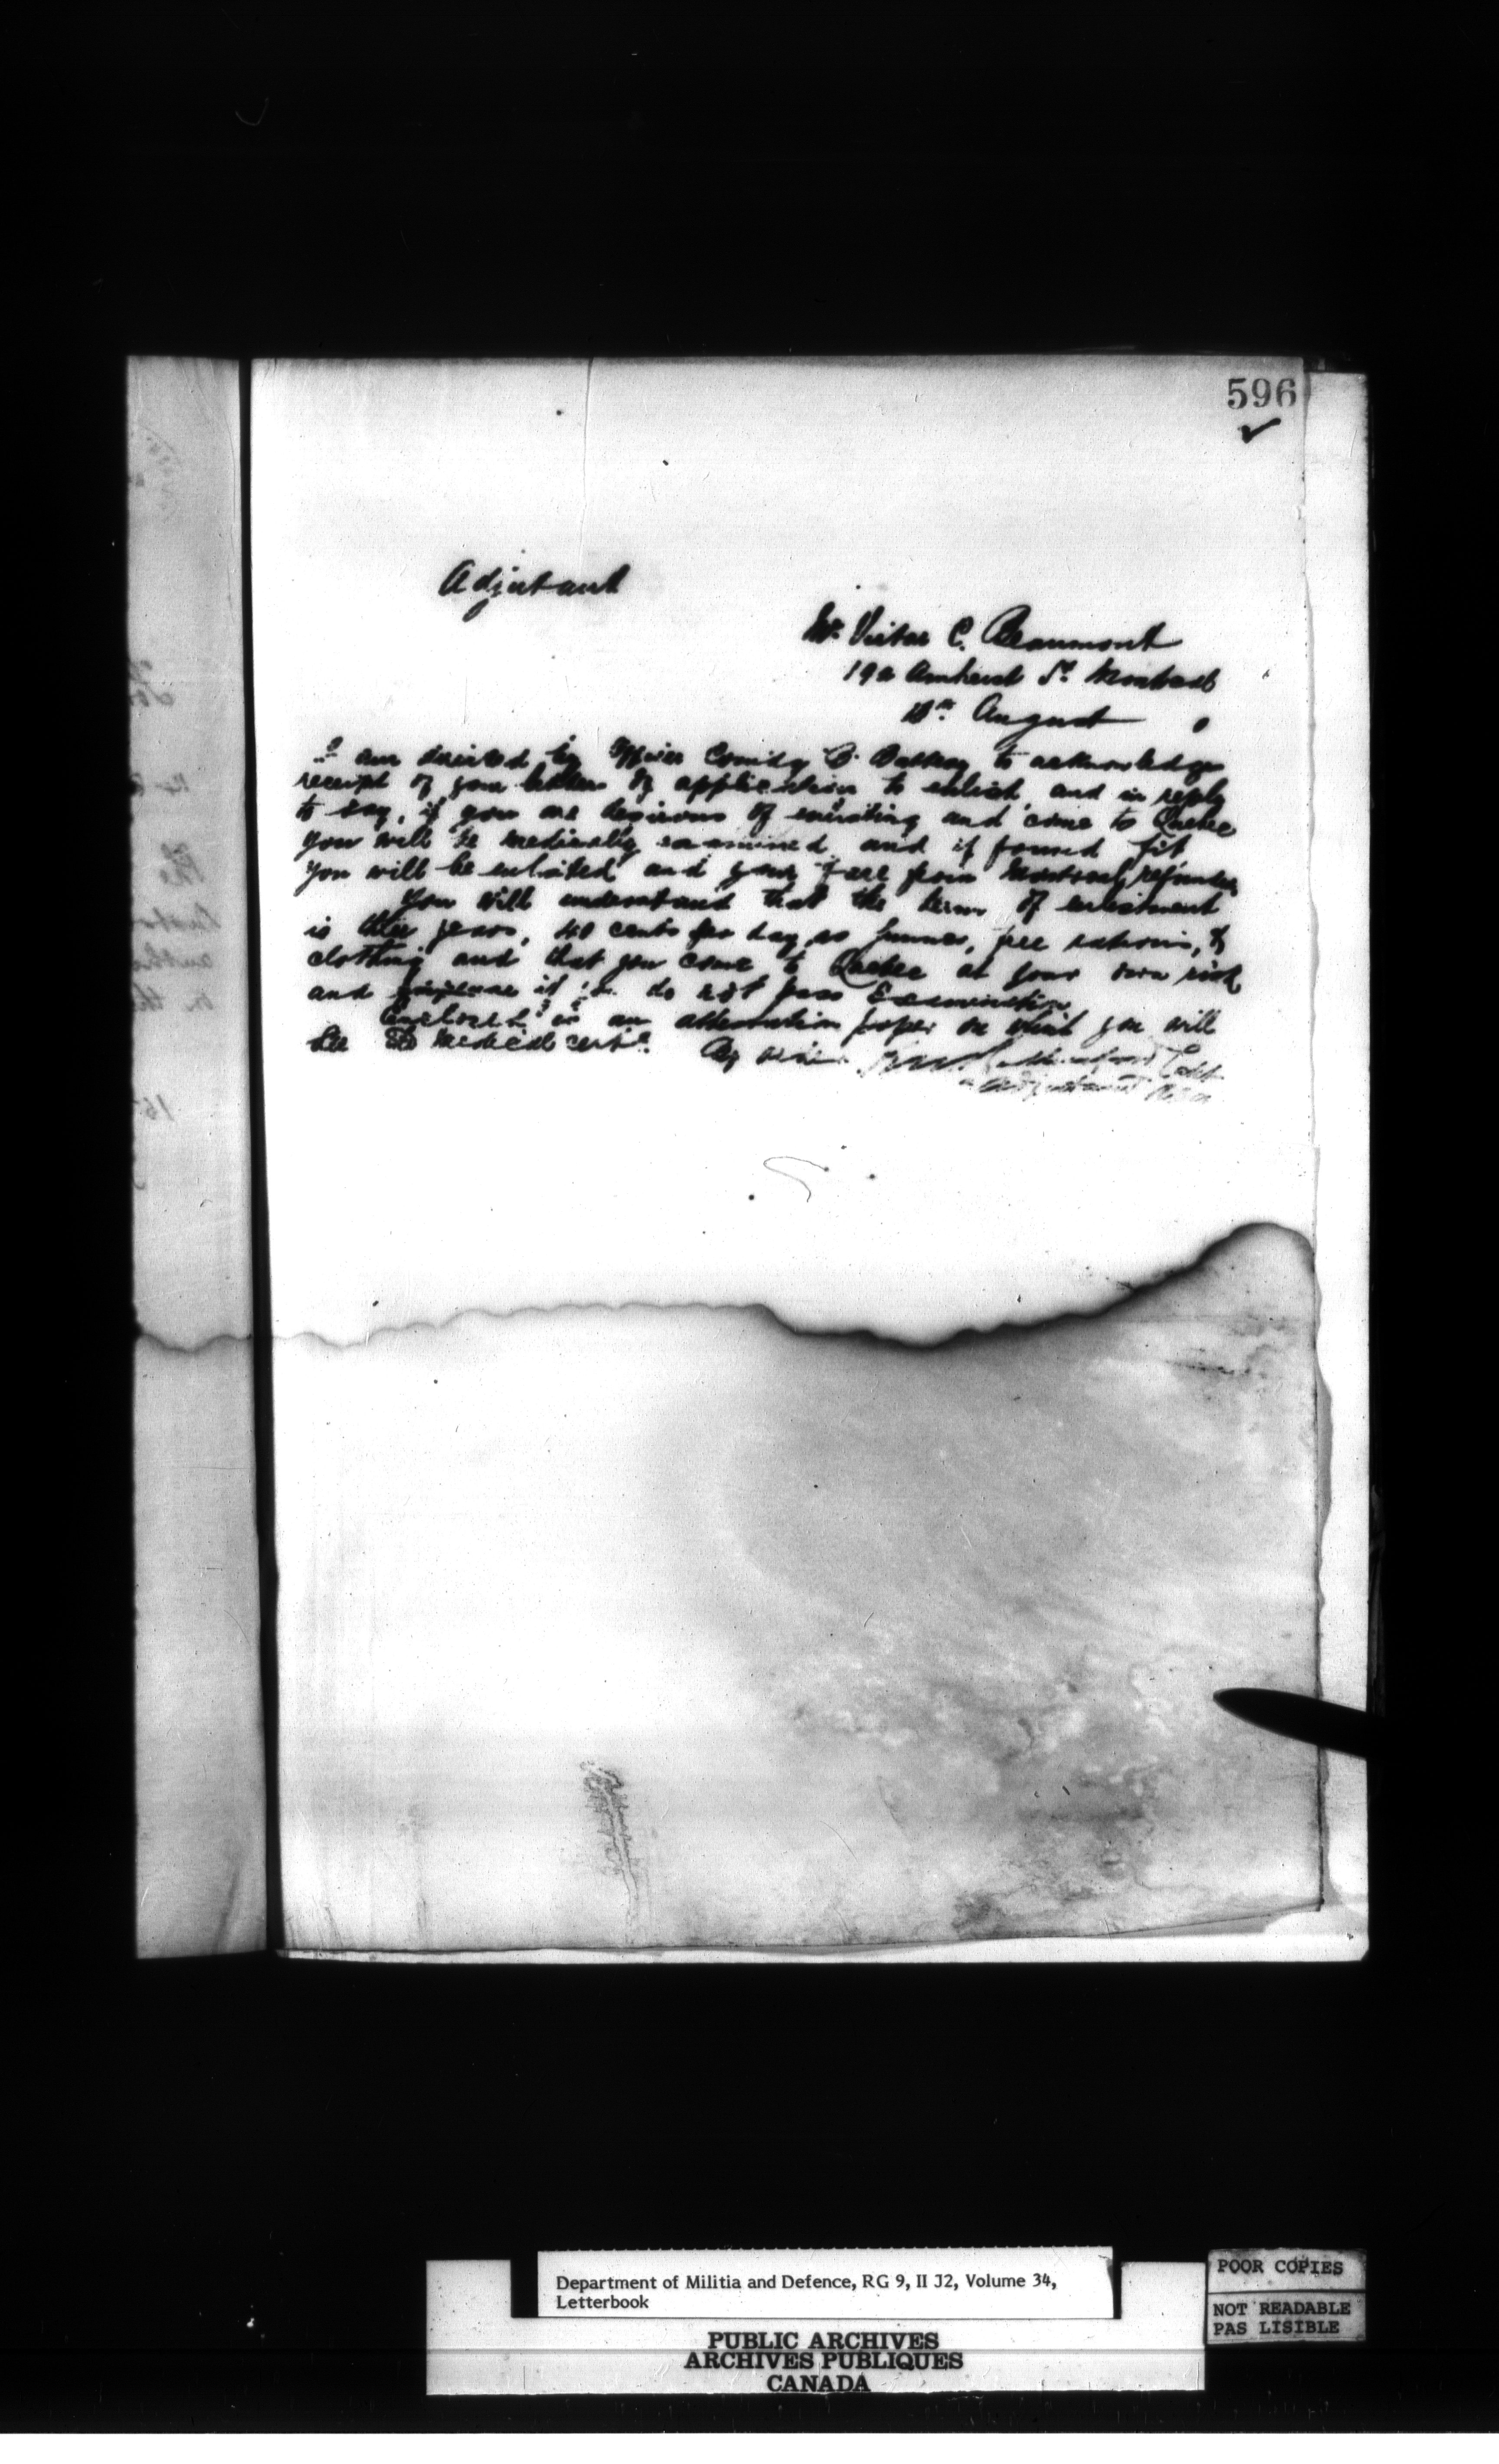 596
Adjutant
Mr. Victor C. Beaumont
19a Amherst St. Montreal
August
I am directed by Officer Comdg B. Battery to acknowledge
receipt of your letter of application to enlist, and in reply
to say, if you are desirous of enlisting and come to Quebec
you will be medically examined and if found fit
you will be enlisted and your fare from Montreal refunded
You will understand that the term of enlistment
is three years, 40 cents per day as Gunner, free rations, &
clothing and that you come to Quebec at your own risk
and expense if you do not pass Examination
Enclosed is an attestation paper on which you will
see the medical certe. By order
Adjutant
Department of Militia and Defence, RG 9, II J2, Volume 34,
Letterbook
POOR COPIES
NOT READABLE
PAS LISIBLE
PUBLIC ARCHIVES
ARCHIVES PUBLIQUES
CANADA